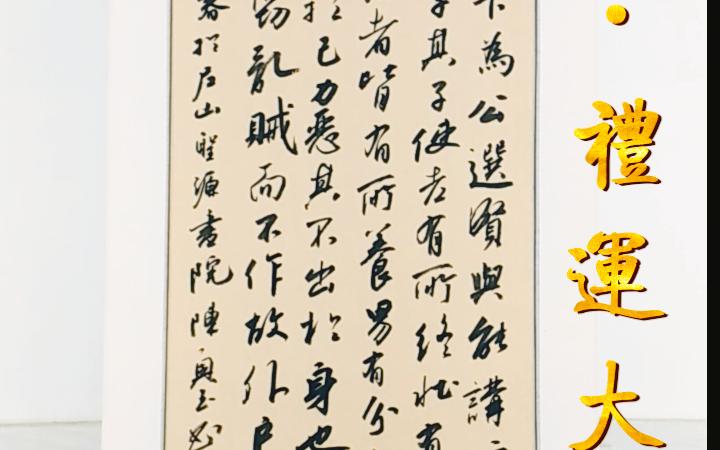 ·禮運大
為公選賢與能講
其子使老有所終壯有
者皆有所養男有分
於己力惡其不出於身也
竊亂賊而不作故外戶
於尼山聖源書院陳